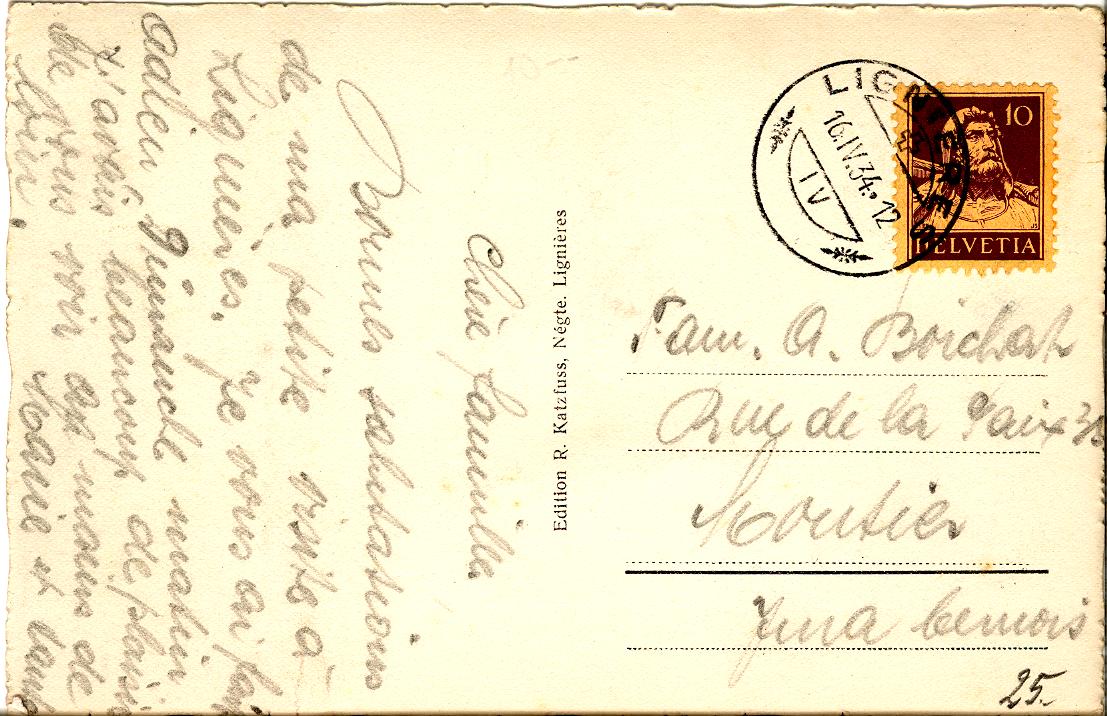 Chère famille
Bonnes salutations
de ma petite visite à
Lignières. Je vous ai fai
adieu Dimanche matin
J'avais beaucoup de plaisir
de vous voir au moins de
loin. Marie et
Edition R. Katzfuss, Négte. Lignières
LIGNIÈRES
16.IV.34.12
IV
10
HELVETIA
Fam. A. Boichat
Rue de la Paix
Moutier
Jura bernois
25.-